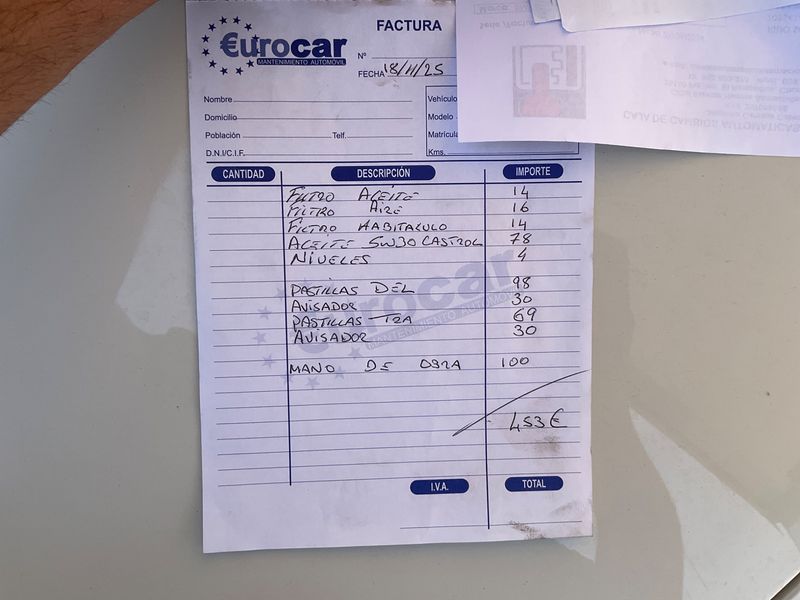 €urocar
MANTENIMIENTO AUTOMÓVIL
FACTURA
Nº
FECHA 18/11/25
Nombre
Domicilio
Población Telf.
D.N.I/C.I.F.
Vehículo
Modelo
Matrícula
Kms.
CAJA DE CAMBIOS AUTOMATICAS
CANTIDAD DESCRIPCIÓN IMPORTE
FILTRO ACEITE 14
FILTRO AIRE 16
FILTRO HABITACULO 14
ACEITE 5W30 CASTROL 78
NIVELES 4
PASTILLAS DEL 98
AVISADOR 30
PASTILLAS TRA 69
AVISADOR 30
MANO DE OBRA 100
453€
€urocar
MANTENIMIENTO AUTOMÓVIL
I.V.A. TOTAL